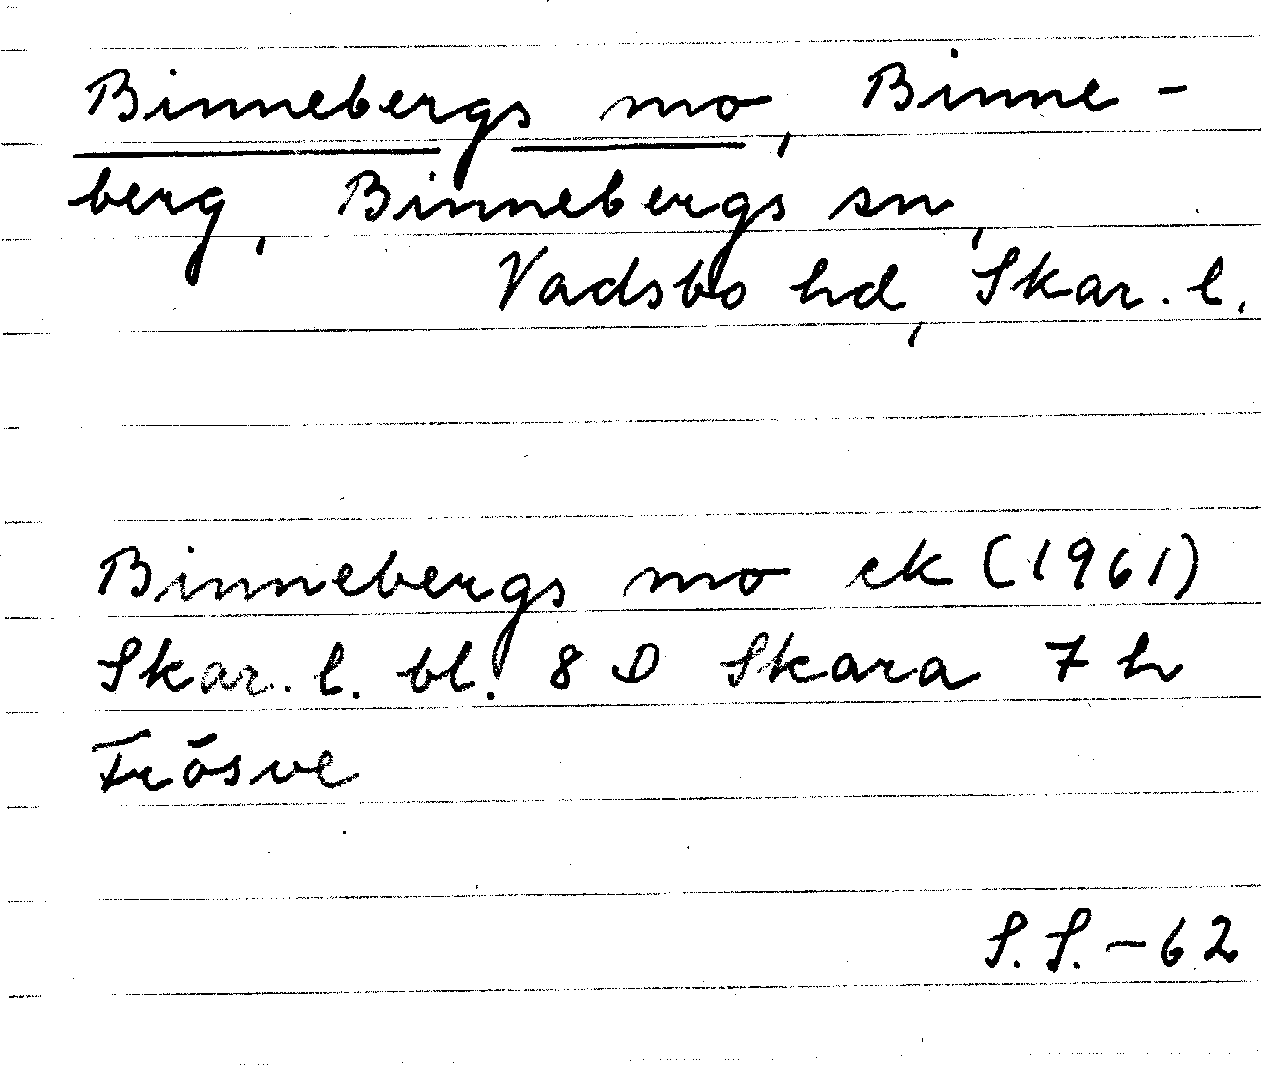 Binnebergs mo, Binne-
berg, Binnebergs sn,
Vadsbo hd, Skar. l.
Binnebergs mo ek (1961)
Skar. l. bl. 8 D Skara 7 h
Frösve
S.S. -62